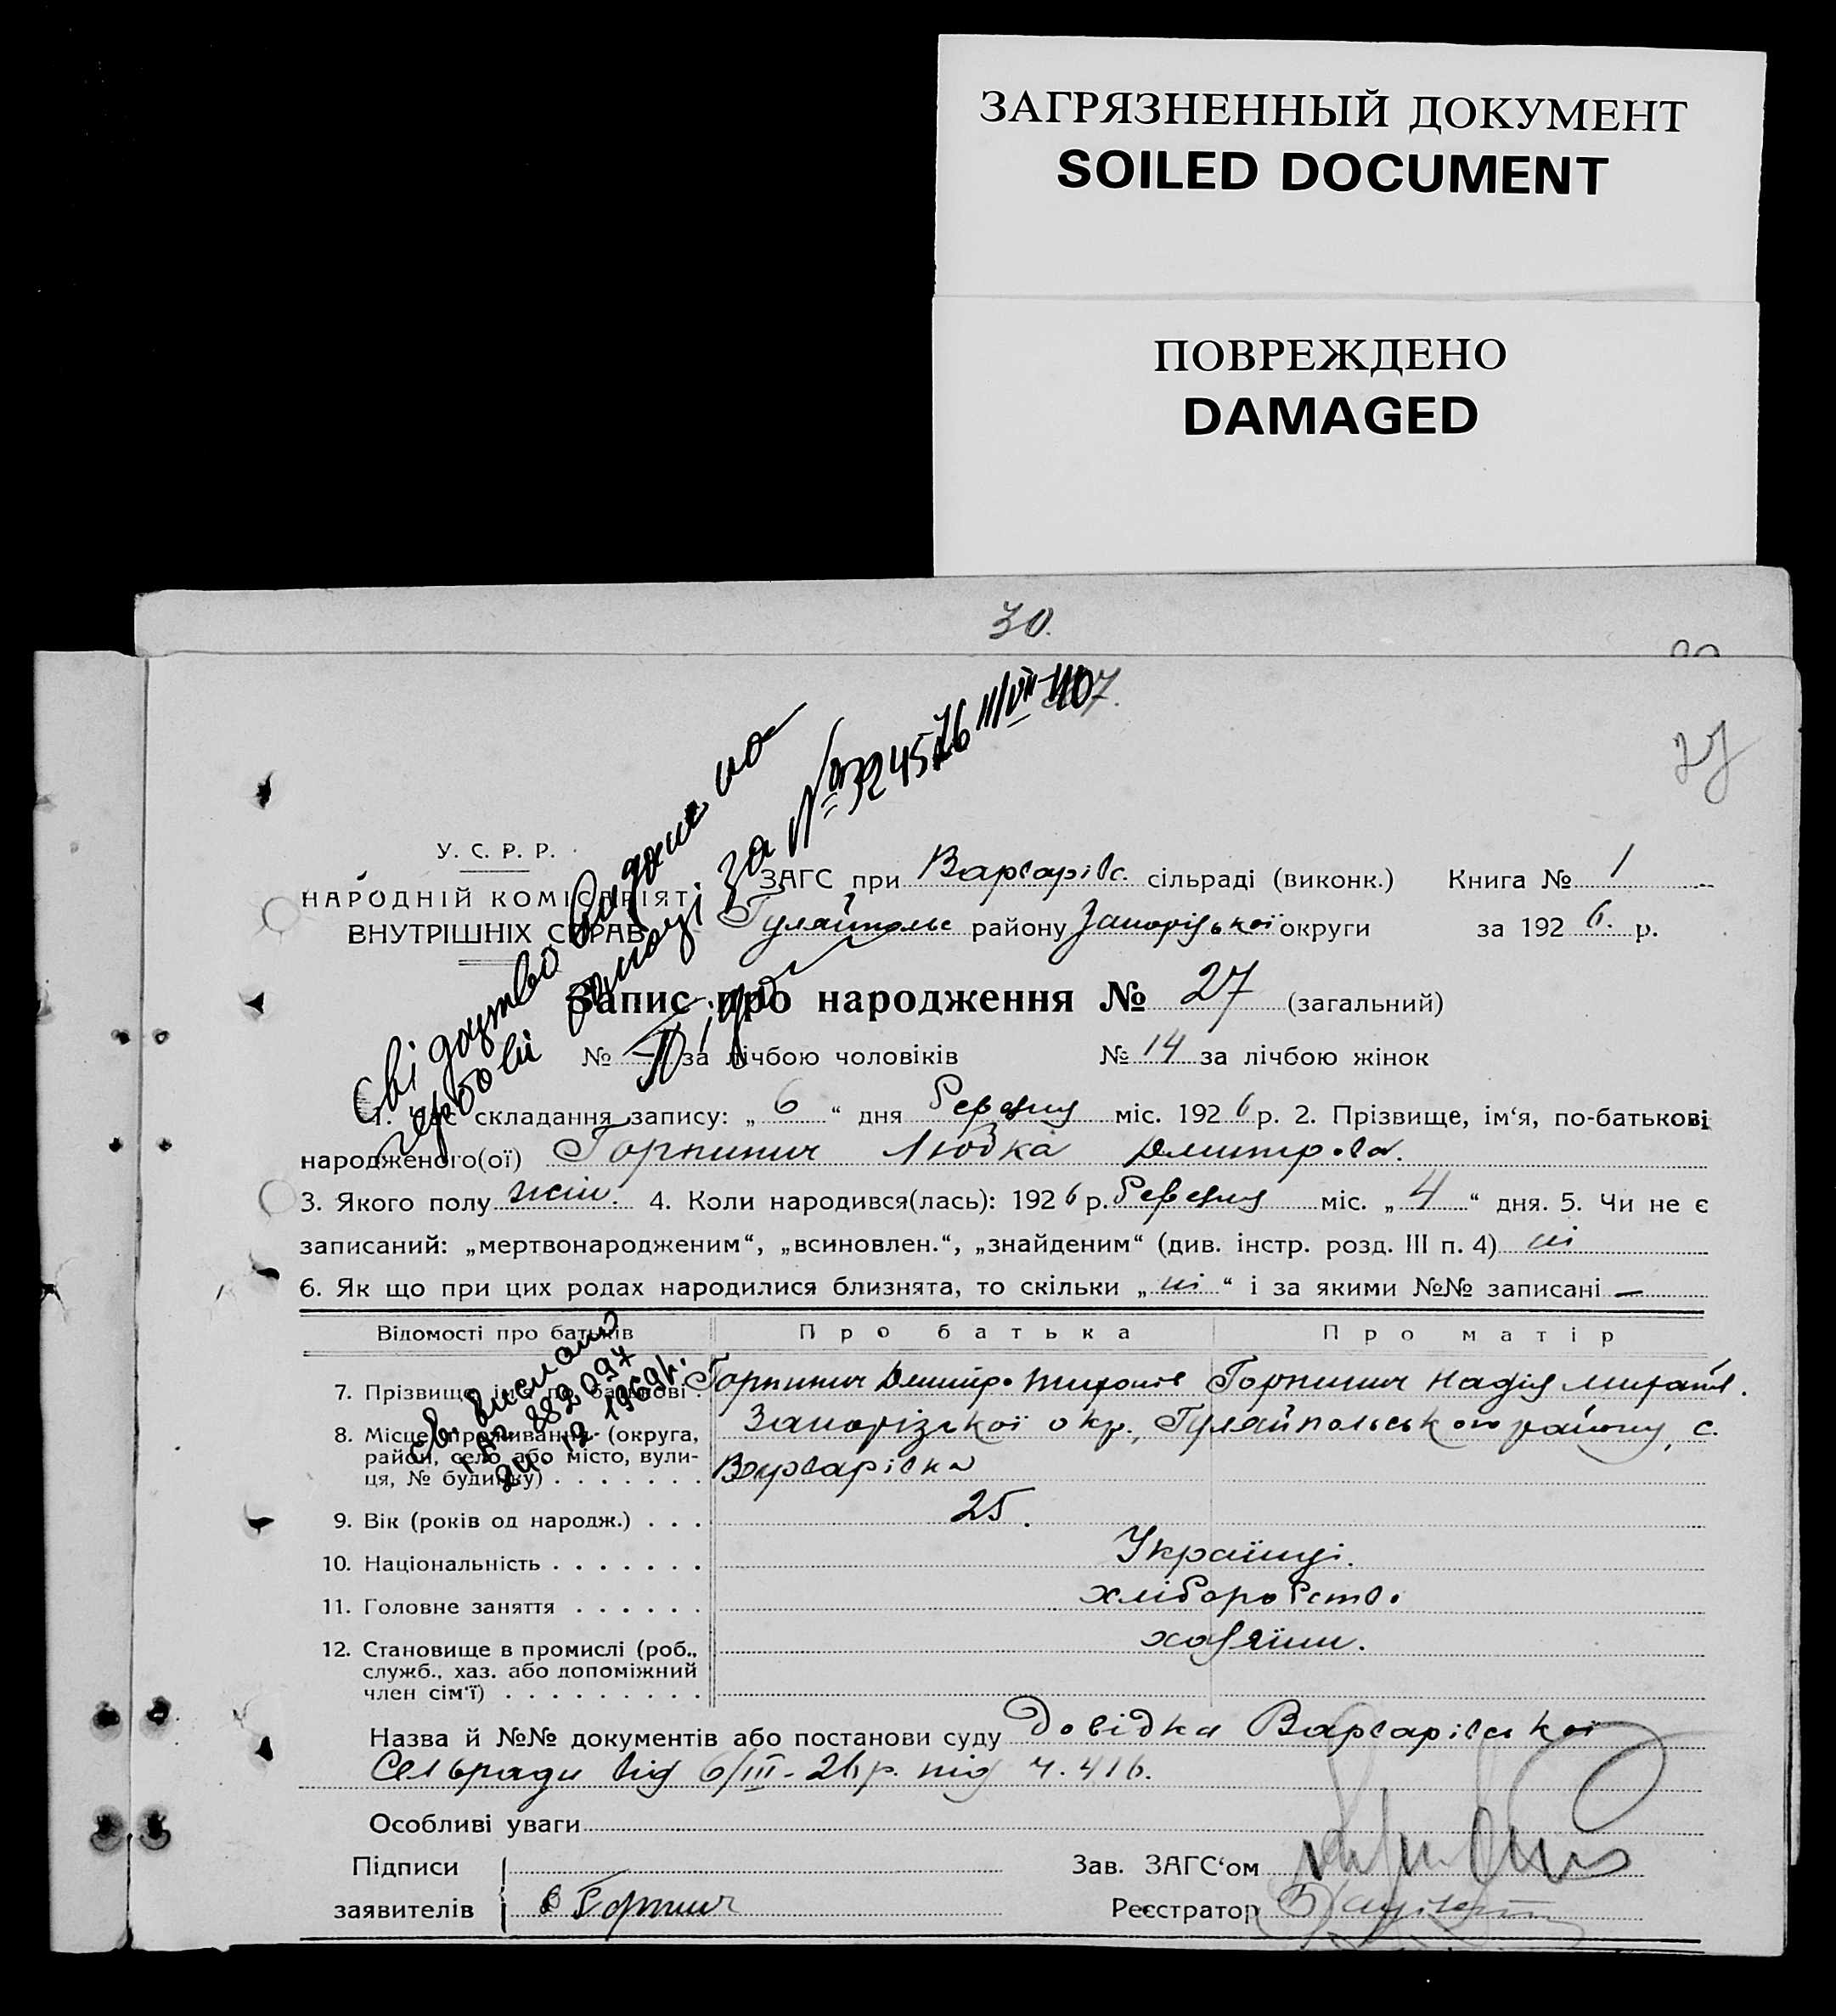 ЗАГРЯЗНЕННЫЙ ДОКУМЕНТ
SOILED DOCUMENT
ПОВРЕЖДЕНО
DAMAGED
30.
27
У. С. Р. Р.
НАРОДНІЙ КОМІСАРІЯТ
ВНУТРІШНІХ СПРАВ
Свідоцтво видане по
гербовій за № 11/VII-40
ЗАГС при Варварівс. сільраді (виконк.) Книга № 1
Гуляйпольс району Запорізької округи за 1926. р.
Запис про народження № 27 (загальний)
№ — за лічбою чоловіків № 14 за лічбою жінок
1. Час складання запису: „ 6 “ дня Березня міс. 1926 р. 2. Прізвище, ім‘я, по-батькові
народженого(ої) Горпинич Любка Дмитрова.
3. Якого полу жін. 4. Коли народився(лась): 1926 р. Березня міс. „ 4 “ дня. 5. Чи не є
записаний: „мертвонародженим“, „всиновлен.“, „знайденим“ (див. інстр. розд. III п. 4) ні
6. Як що при цих родах народилися близнята, то скільки „ ні “ і за якими №№ записані —
Відомості про батьків Про батька Про матір
7. Прізвище, ім‘я по батькові . Горпинич Дмитро Горпинич Надія Михайл.
8. Місце проживання (округа, Запорізької окр., Гуляйпольського району, с.
район, село або місто, вули-
ця, № будинку) . . . . . . . Варварівка
9. Вік (років од народж.) . . . 25.
10. Національність . . . . . . . Українці.
11. Головне заняття . . . . . . хліборобство
12. Становище в промислі (роб., хазяїни.
служб., хаз. або допоміжний
член сім‘ї) . . . . . . . . .
Назва й №№ документів або постанови суду Довідка Варварівської
Сельради від 6/III-26 р. під ч. 416.
Особливі уваги
Підписи
заявителів Горпинич
Зав. ЗАГС‘ом
Реєстратор